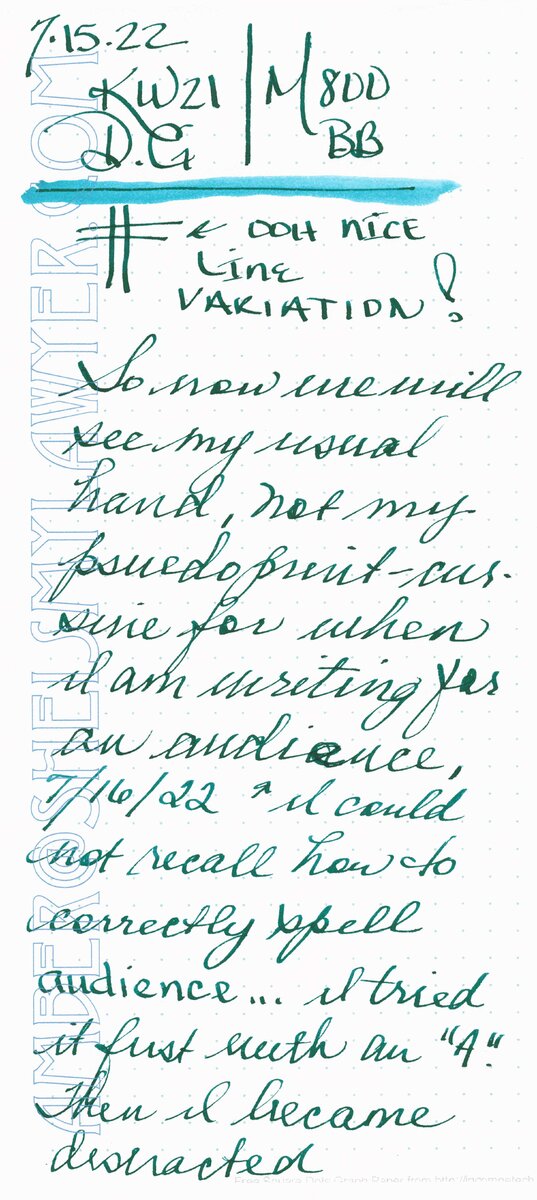 7.15.22
KW21 | M800
D.G | BB
← OOH NICE
LINE
VARIATION!
So now we will
see my usual
hand, not my
psuedoprint-cur-
sive for when
I am writing for
an audience,
7/16/22 ^ I could
not recall how to
correctly spell
audience... I tried
it first with an "A."
Then I became
distracted
AMBER@SHEISMYLAWYER.COM